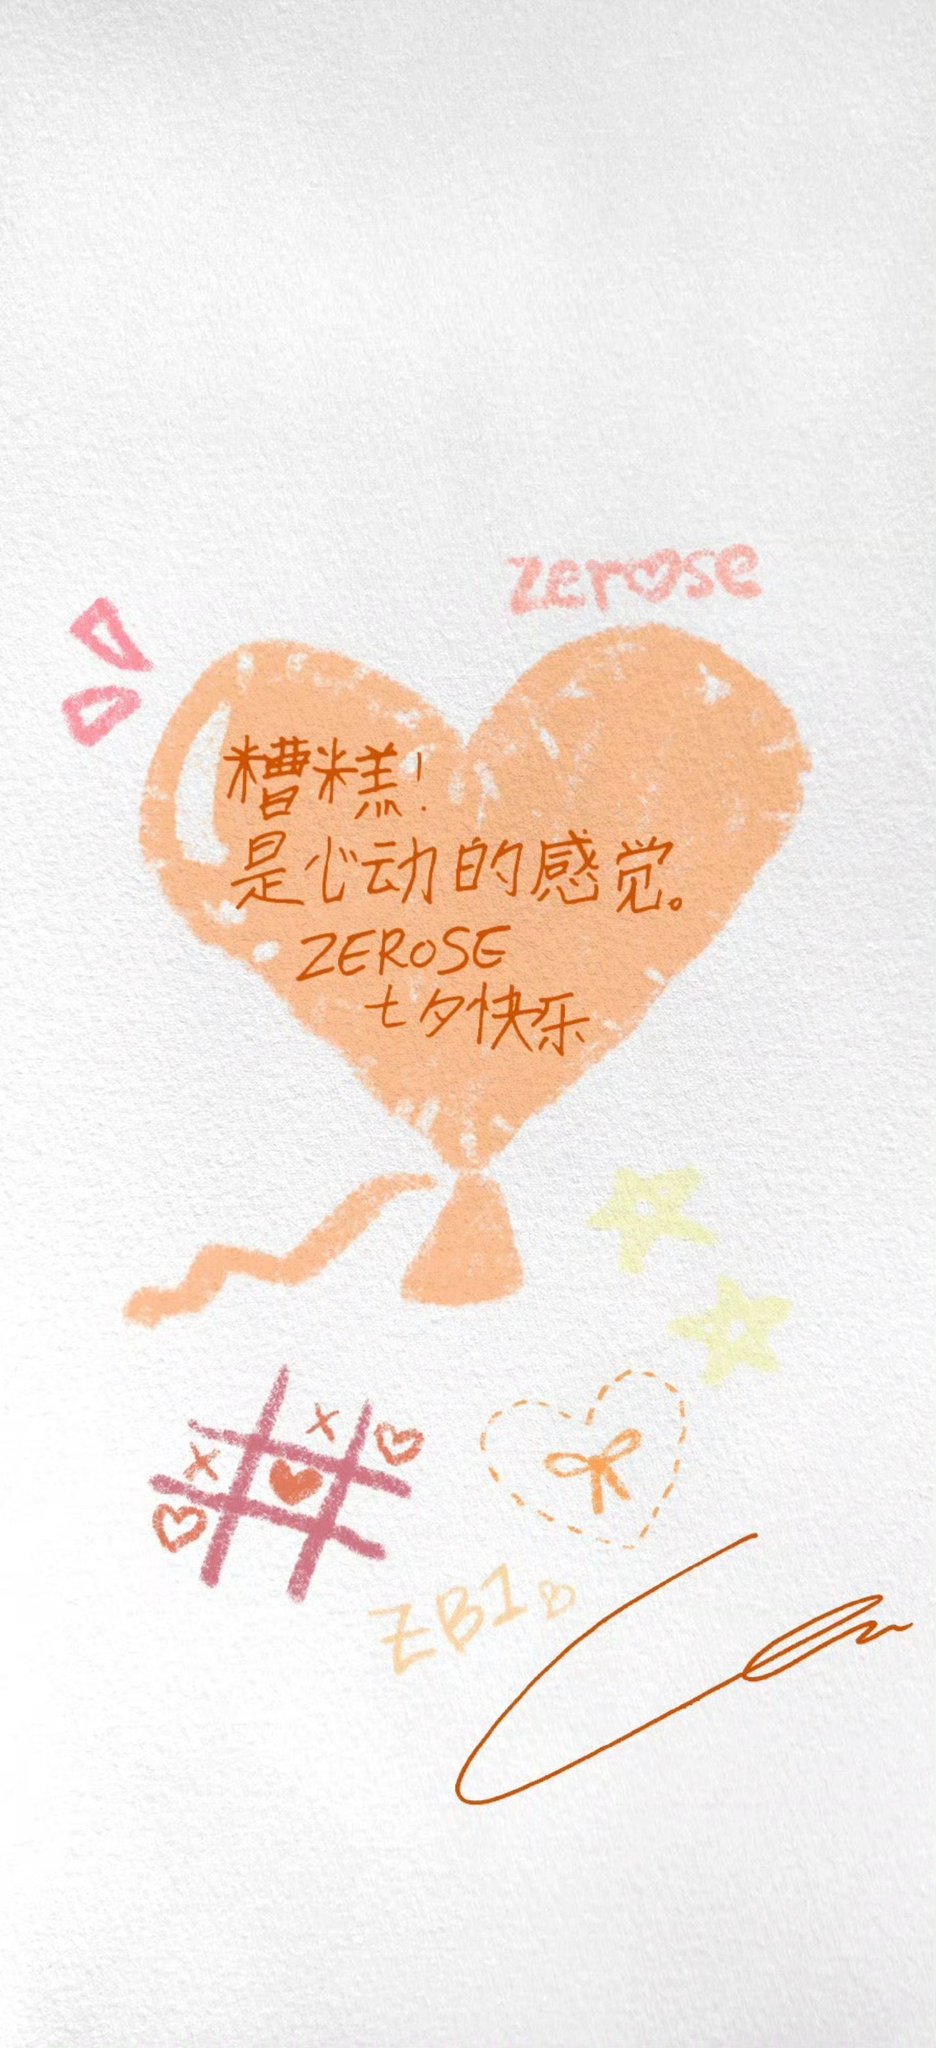 zerose
糟糕！
是心动的感觉。
ZEROSE
七夕快乐
X
X
ZB1